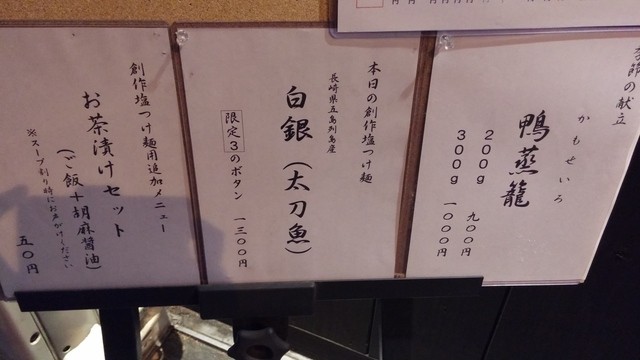 季節の献立
かもせいろ
鴨蒸籠
200g 九〇〇円
300g 一〇〇〇円
本日の創作塩つけ麺
長崎県五島列島産
白銀（太刀魚）
限定3のボタン 一三〇〇円
創作塩つけ麺用追加メニュー
お茶漬けセット
（ご飯＋胡麻醤油）
※スープ割り時にお声がけください
五〇円